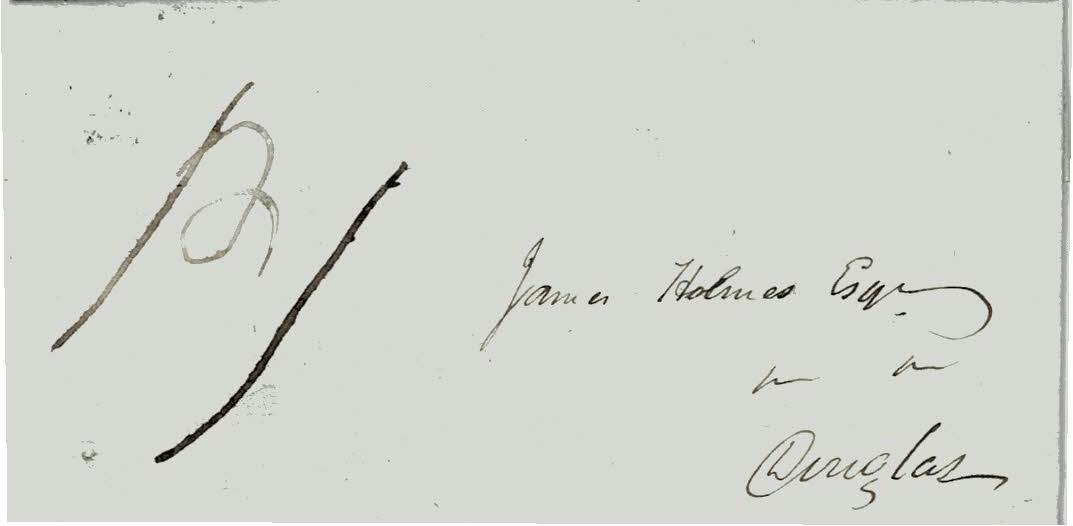 James Holmes Esqr
" "
Douglas